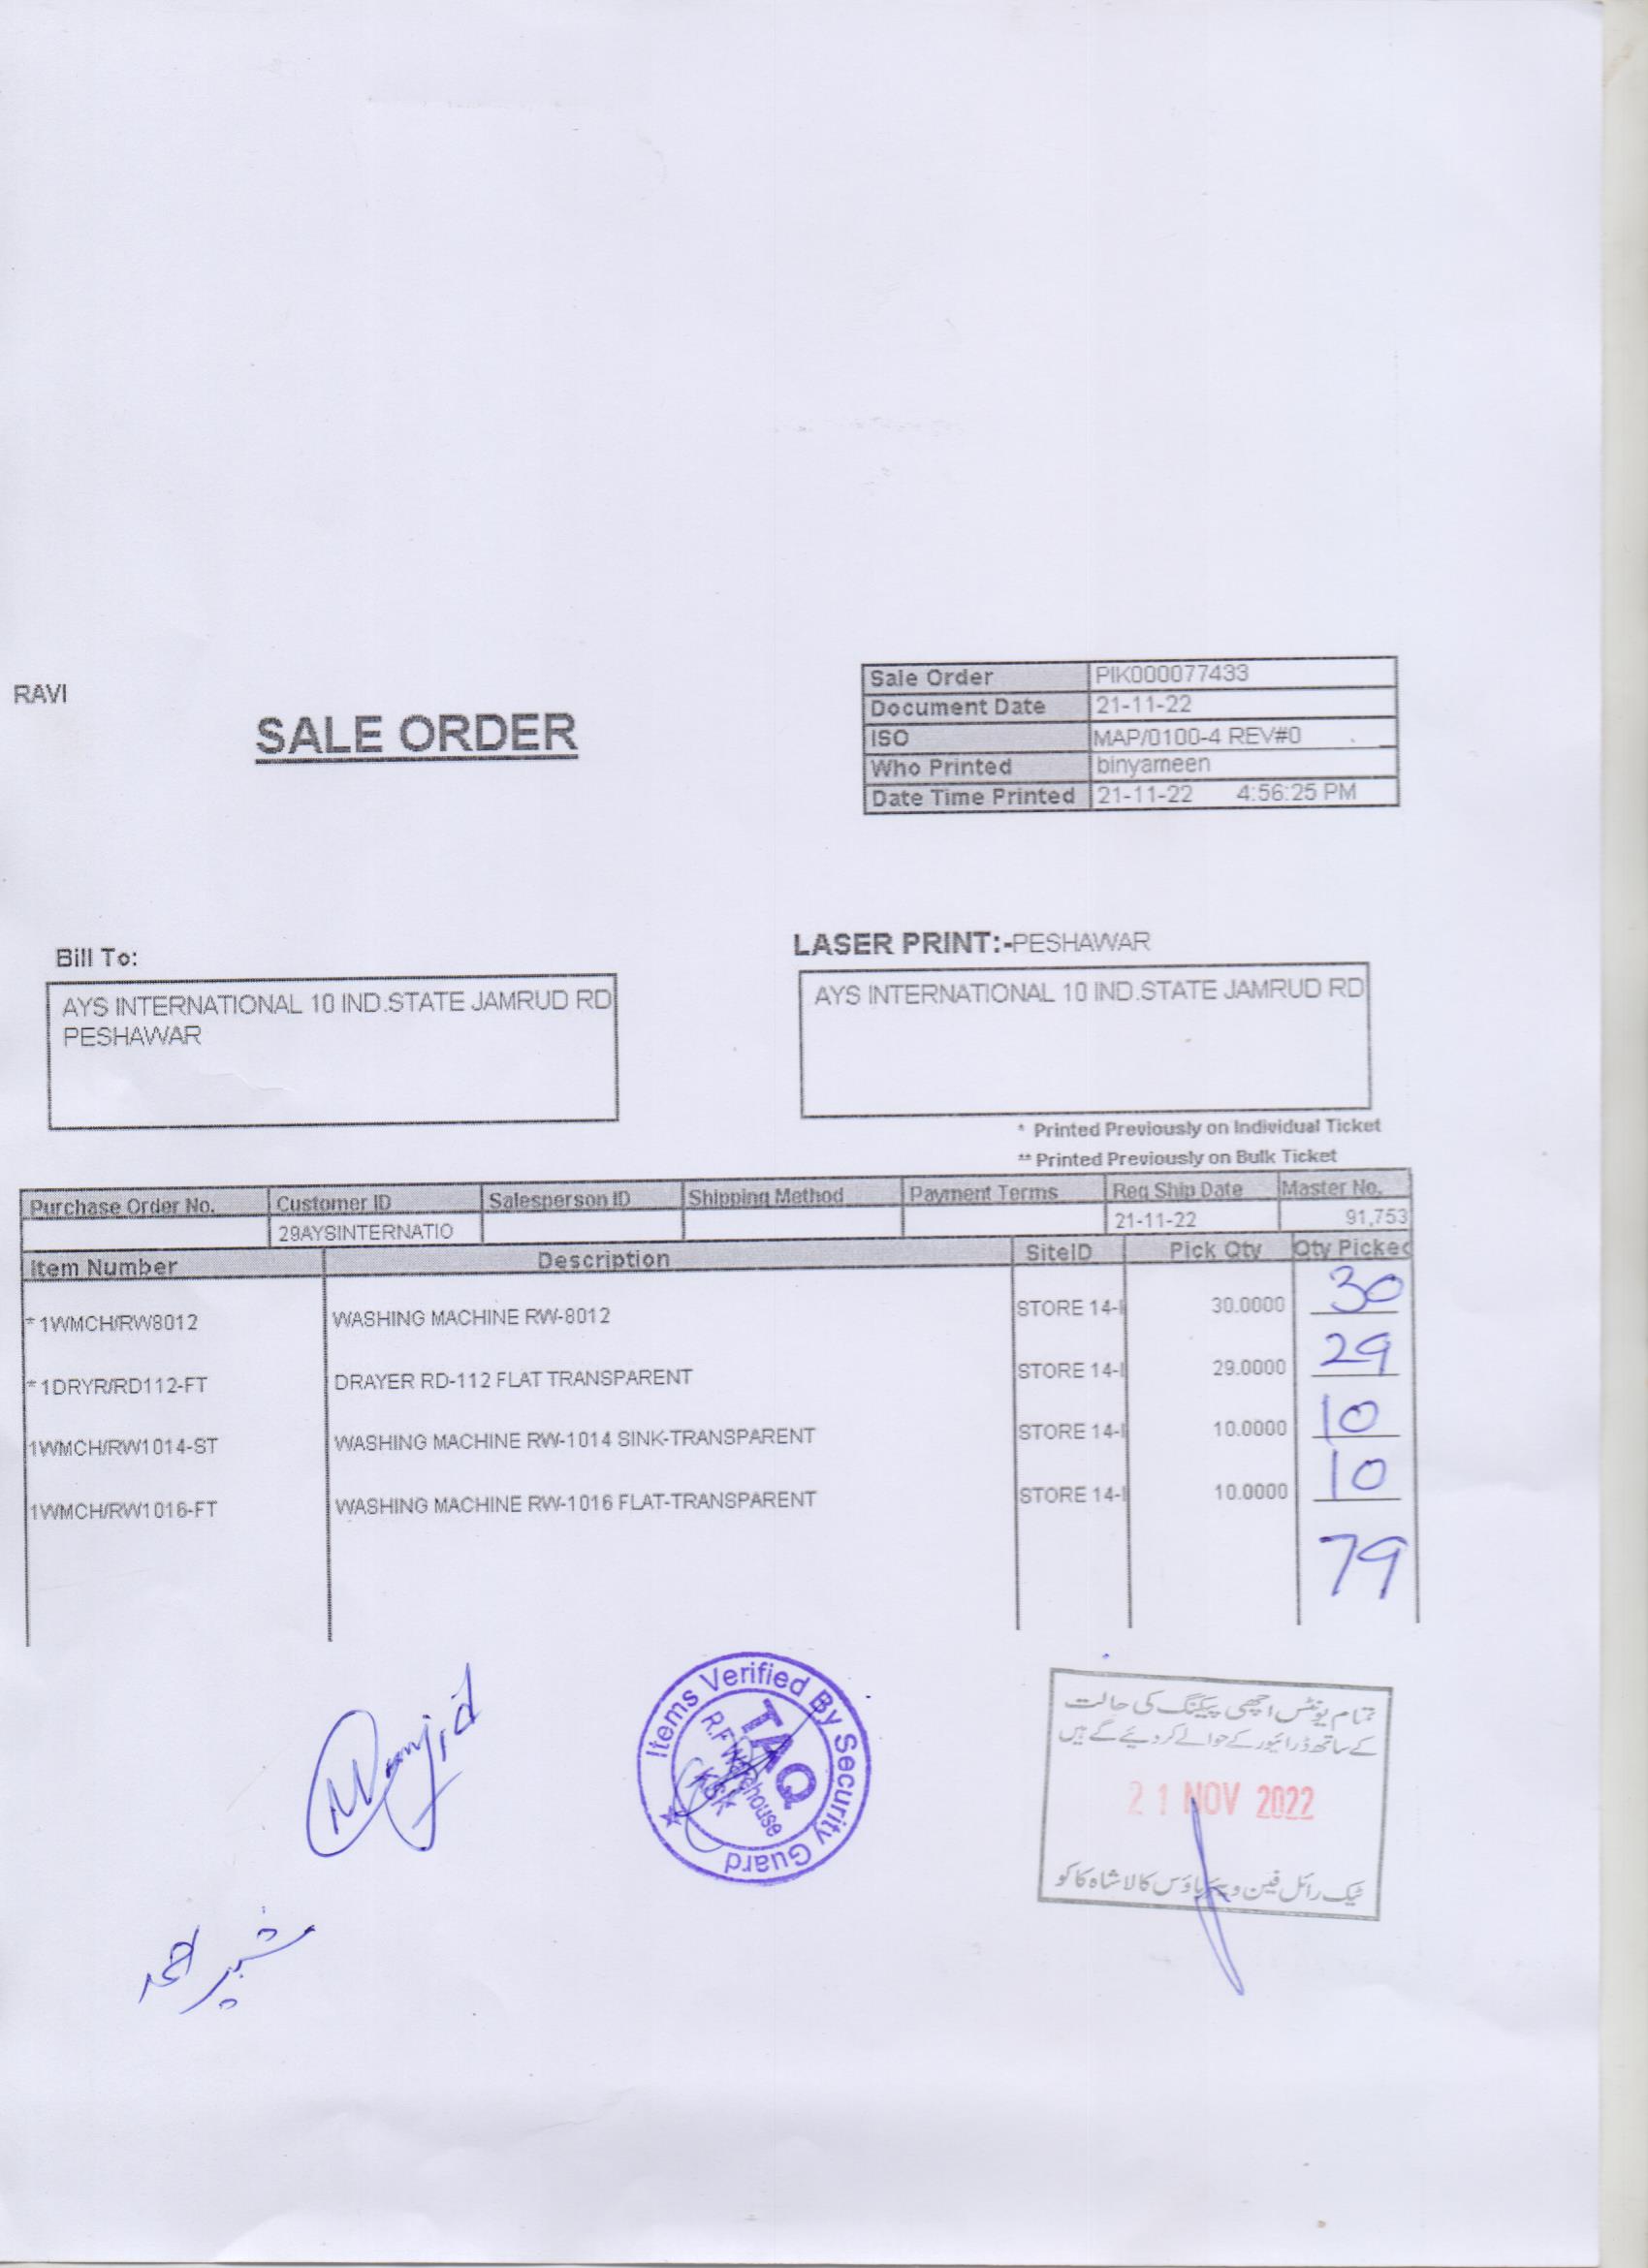 RAVI
SALE ORDER
Sale Order PIK000077433
Document Date 21-11-22
ISO MAP/0100-4 REV#0
Who Printed binyameen
Date Time Printed 21-11-22 4:56:25 PM
Bill To:
AYS INTERNATIONAL 10 IND.STATE JAMRUD RD
PESHAWAR
LASER PRINT:-PESHAWAR
AYS INTERNATIONAL 10 IND.STATE JAMRUD RD
* Printed Previously on Individual Ticket
** Printed Previously on Bulk Ticket
Purchase Order No. Customer ID Salesperson ID Shipping Method Payment Terms Req Ship Date Master No.
29AYSINTERNATIO 21-11-22 91,753
Item Number Description SiteID Pick Qty Qty Picked
* 1WMCH/RW8012 WASHING MACHINE RW-8012 STORE 14-I 30.0000 30
* 1DRYR/RD112-FT DRAYER RD-112 FLAT TRANSPARENT STORE 14-I 29.0000 29
1WMCH/RW1014-ST WASHING MACHINE RW-1014 SINK-TRANSPARENT STORE 14-I 10.0000 10
1WMCH/RW1016-FT WASHING MACHINE RW-1016 FLAT-TRANSPARENT STORE 14-I 10.0000 10
79
Items Verified By Security Guard
TAQ
R.F Warehouse
KSK
تمام یونٹس اچھی پیکنگ کی حالت
کے ساتھ ڈرائیور کے حوالے کر دیئے گے ہیں
21 NOV 2022
ٹیک رائل فین ویئر ہاؤس کالا شاہ کاکو
شبیر احمد